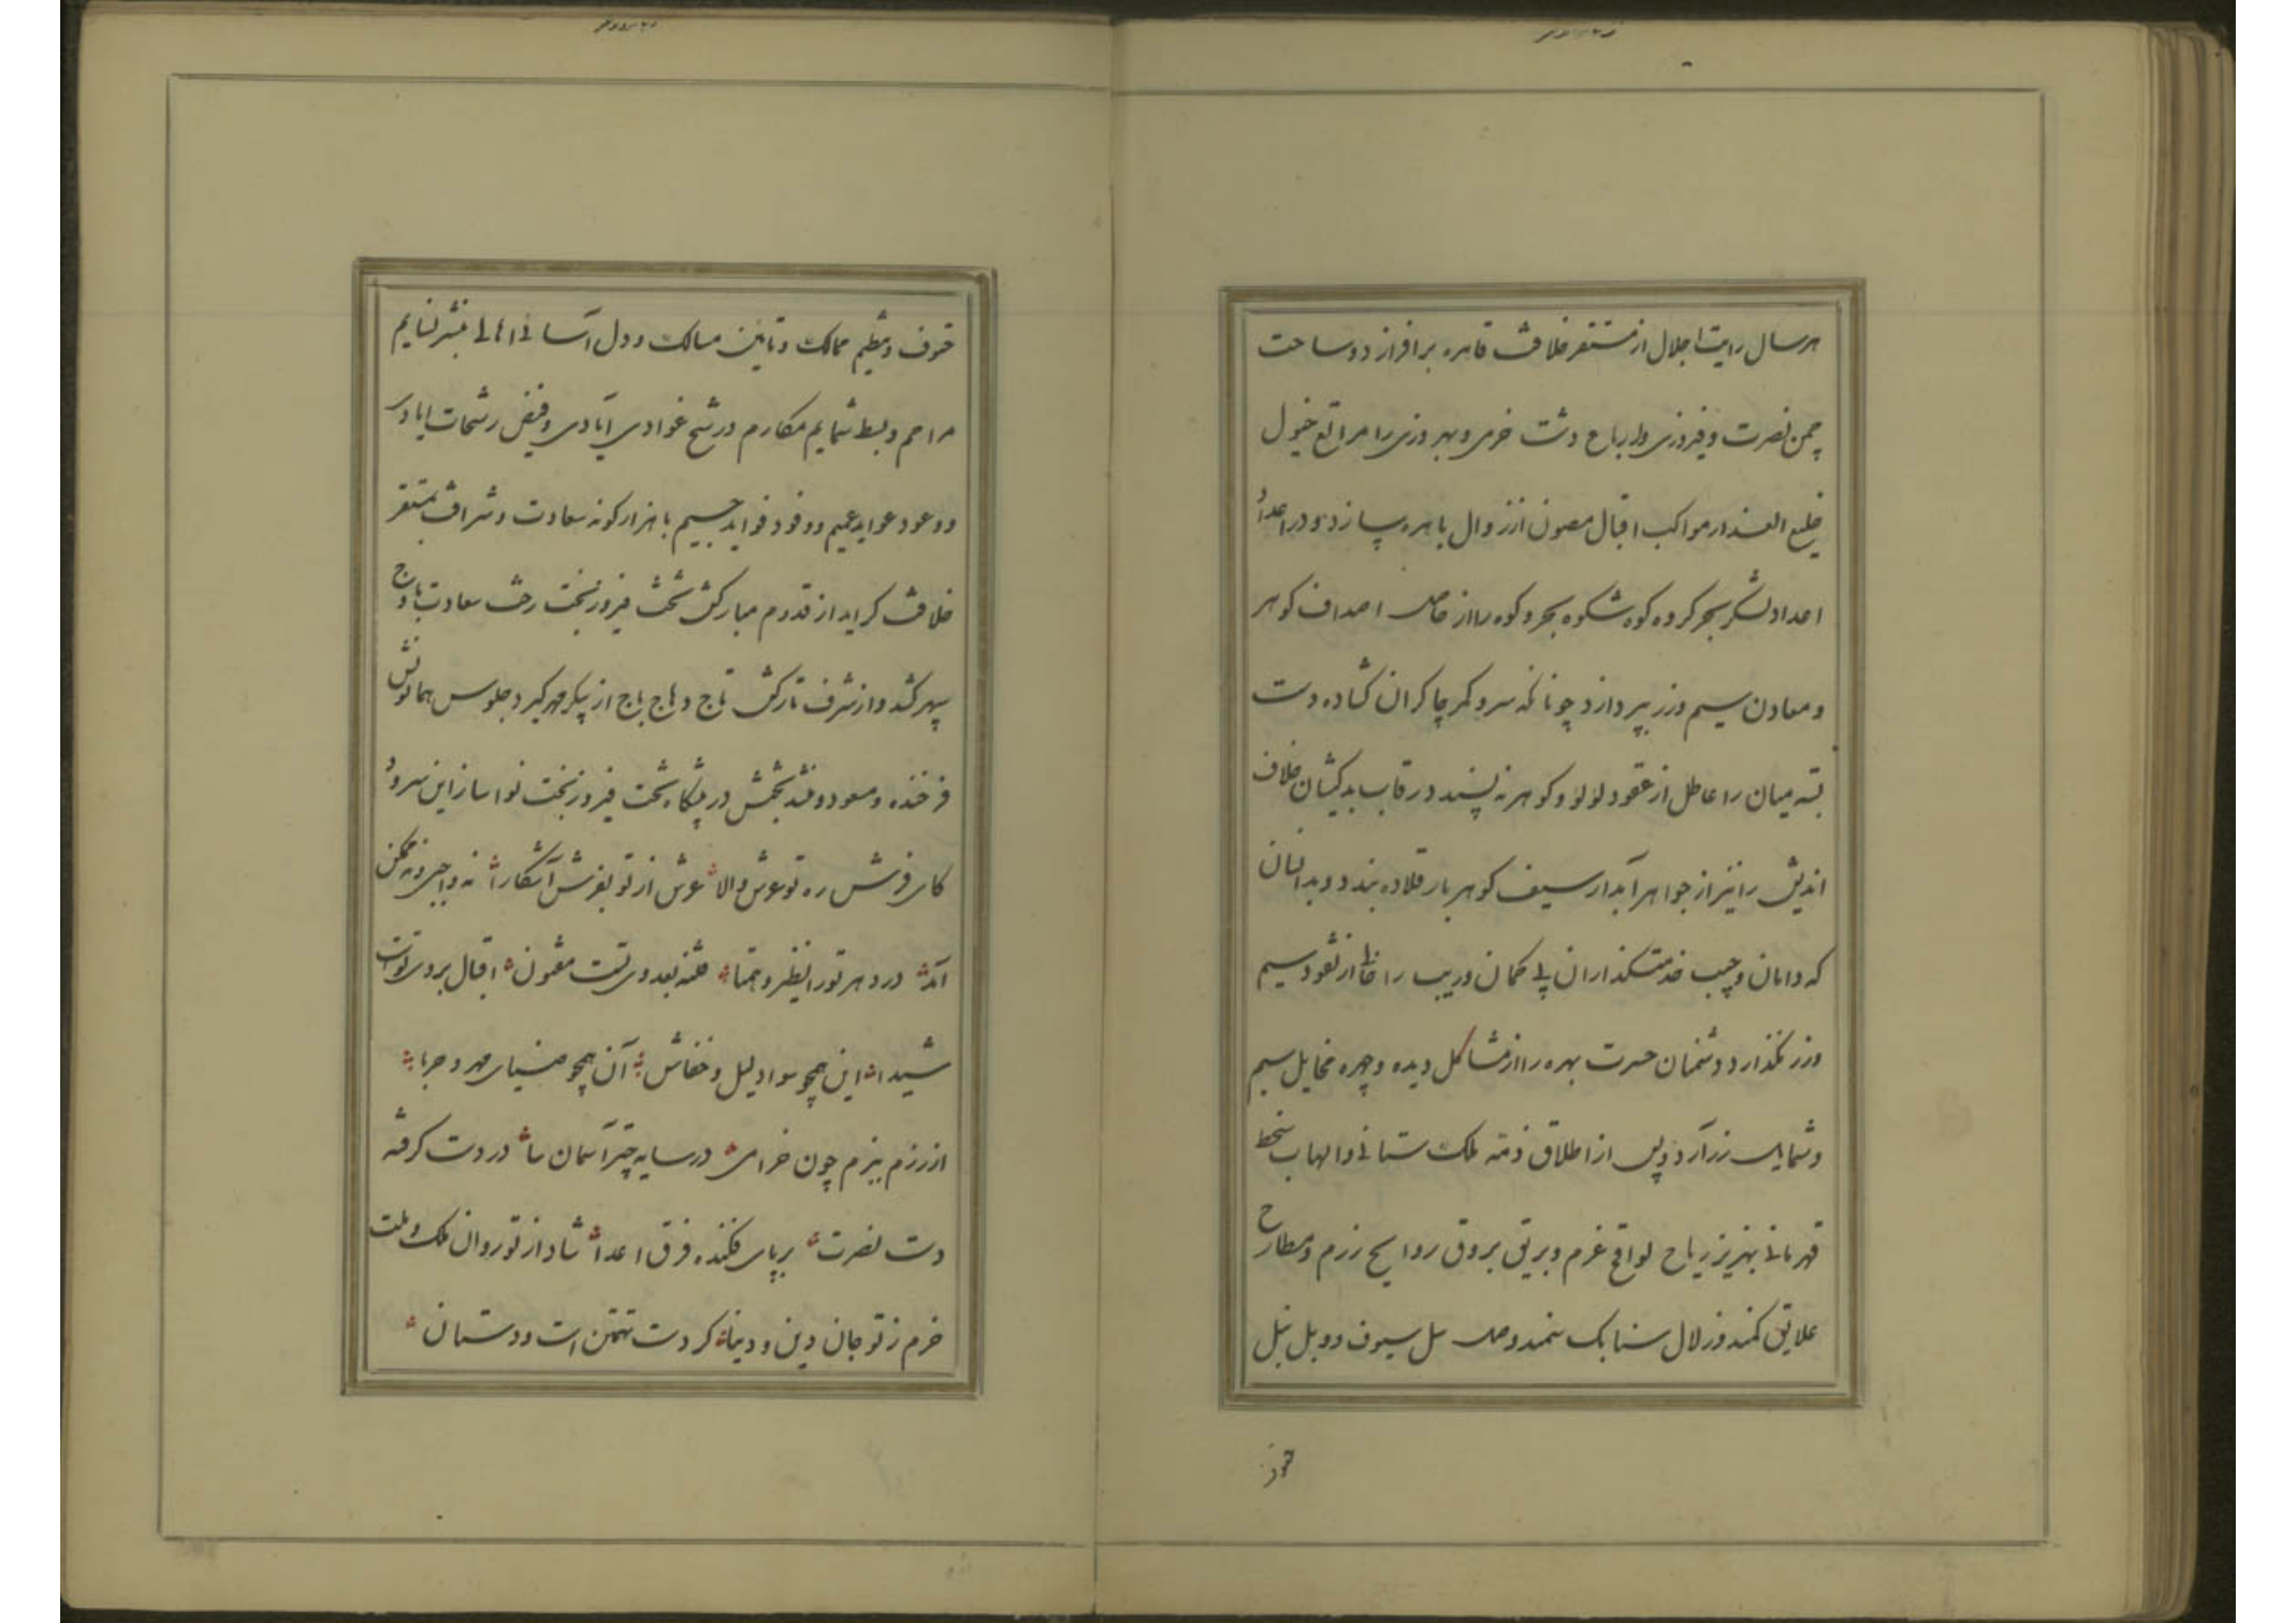 هر سال رایت اجلال از مستقر خلافت قاهره برافرازد و ساحت
چمن نصرت و فیروزی و ارباع دشت خرمی و بهروزی را مراتع خیول
خلیع العذار مواکب اقبال مصون از زوال باهره سازد و در اعداد
اعداد لشکر بحر گروه کوه شکوه بحر و کوه را از حاصل اصداف کوهر
و معادن سیم و زر بپردازد چونانکه سر و کمر چاکران کشاده دست
بسته میان را عاطل از عقود لؤلؤ و کوهر نه پسندد رقاب بدکیشان خلاف
اندیش را نیز از جواهر آبدار سیف کوهربار قلاده بندد و بدانسان
که دامان و جیب خدمتکذاران بی کمان و ریب را خالی از نقود سیم
و زر نکذارد دشمنان حسرت بهره را از مشاکل دیده و چهره مخایل سیم
و شمایل زر آرد و پس از اطلاق ذمه ملک ستانی و الهاب سخط
قهرمانی بهزیز ریاح لواقح عزم و بریق بروق روایح رزم و مطارح
علایق کمند و زلال سنابک سمند و صل سل سیوف و وبل نبل
حتوف
حتوف و تنظیم ممالک و تأمین مسالک و دل آسائی اهالی بنشر نسایم
مراحم و بسط شمایم مکارم و رشح غوادی آبادی و فیض رشحات ایادی
و وعود عواید عمیم و وفود فواید جسیم با هزار کونه سعادت و شرافت بمستقر
خلافت کراید از قدوم مبارکش تخت فیروز بخت رخت سعادت باوج
سپهر کشد و از شرف تارکش تاج وهاج باج از پیکر مهر کیرد جلوس همایونش
فرخنده و مسعود و بخشش در پیشکاه تخت فیروز بخت نواساز این سرود
کای فرش ره تو عرش والا عرش از تو بفرش آشکارا نه واجبی و نه ممکن
آمد در دهر تو را نظیر و همتا فتنه بعدوی تست مفتون اقبال بروی تو است
شیدا این همچو سواد لیل و خفاش آن همچو ضیای مهر و حربا
از رزم ببزم چون خرامی در سایه چتر آسمان سا در دست کرفته
دست نصرت بر پای فکنده فرق اعدا شاد از تو روان ملک و ملت
خرم ز تو جان دین و دنیا کر دست تهمتن است و دستان